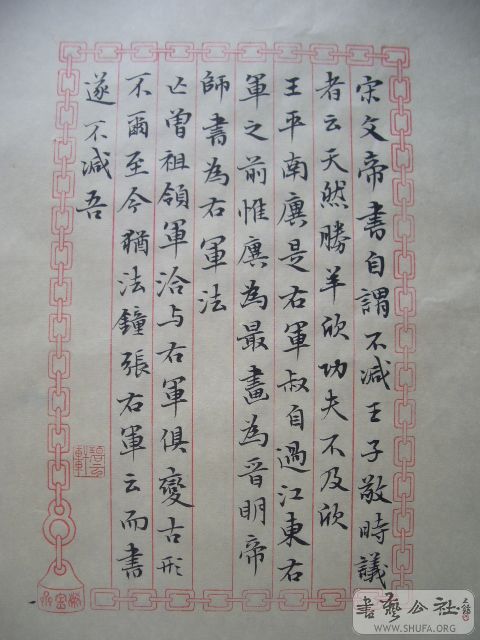 宋文帝書自謂不減王子敬時議
者云天然勝羊欣功夫不及欣
王平南廙是右軍叔自過江東右
軍之前惟廙為最畫為晉明帝
師書為右軍法
亡曾祖領軍洽与右軍俱變古形
不爾至今猶法鐘張右軍云而書
遂不减吾
書藝公社
WWW.SHUFA.ORG